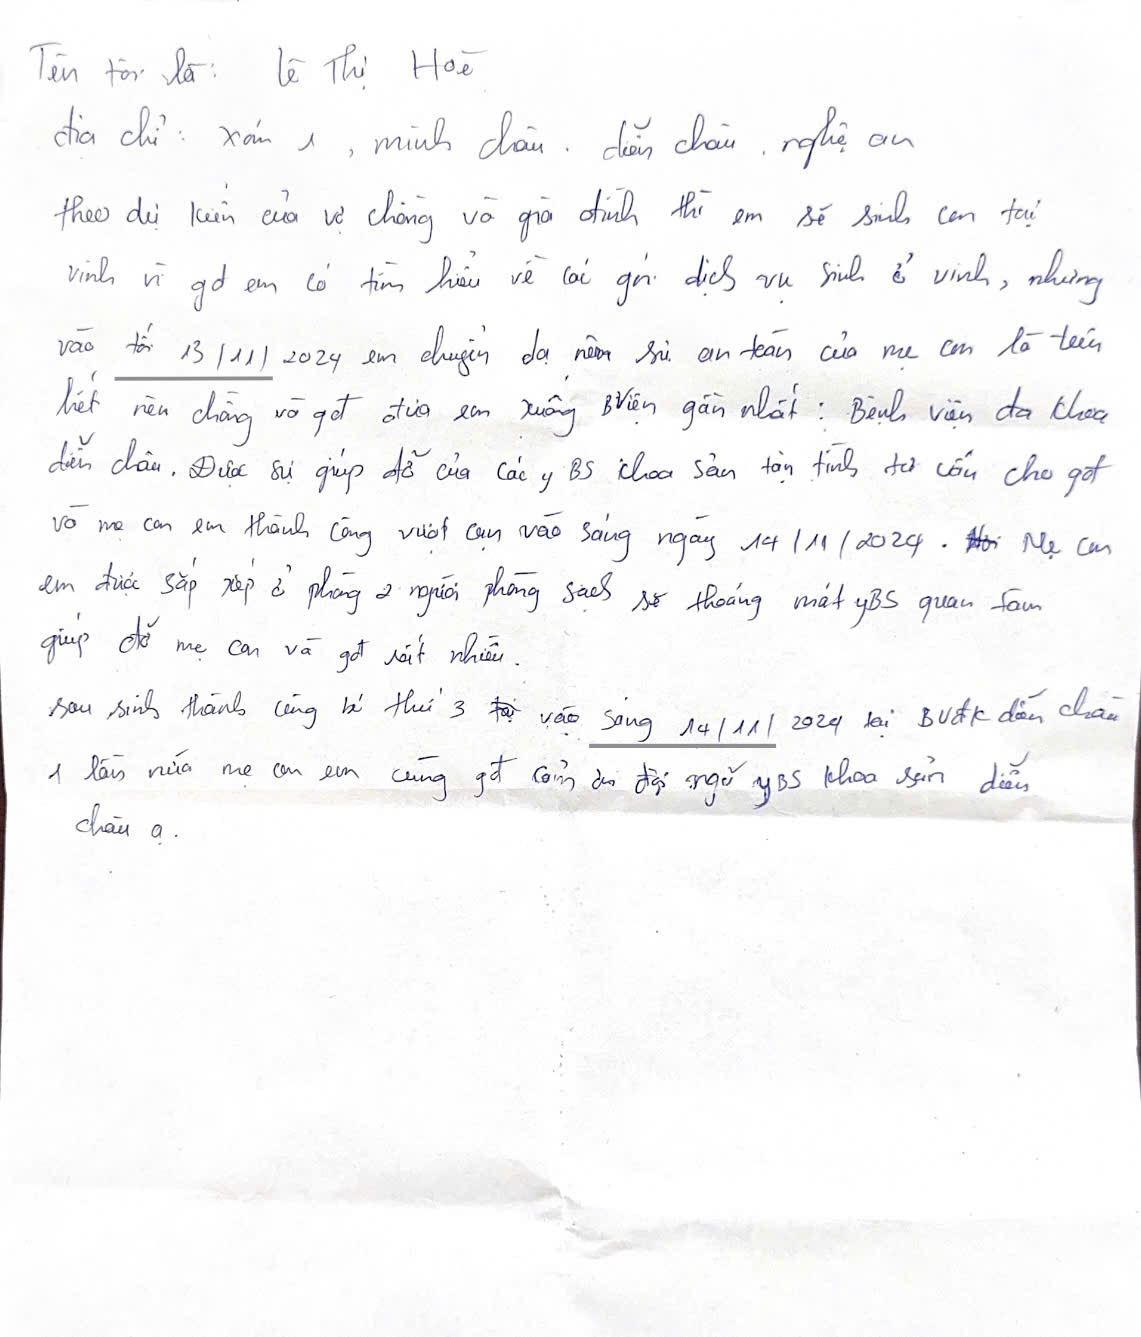 Tên tôi là: Lê Thị Hoè
địa chỉ: xóm 1, minh châu. diễn châu. nghệ an
theo dự kiến của vợ chồng và gia đình thì em sẽ sinh con tại
vinh vì gđ em có tìm hiểu về các gói dịch vụ sinh ở vinh, nhưng
vào tối 13/11/2024 em chuyển dạ nên sự an toàn của mẹ con là trên
hết nên chồng và gđ đưa em xuống BViện gần nhất: Bệnh viện đa khoa
diễn châu. Được sự giúp đỡ của các y BS khoa sản tận tình tư vấn cho gđ
và mẹ con em thành công vượt cạn vào sáng ngày 14/11/2024. Mẹ con
em được sắp xếp ở phòng 2 người phòng sạch sẽ thoáng mát yBS quan tâm
giúp đỡ mẹ con và gđ rất nhiều.
sau sinh thành công bé thứ 3 vào sáng 14/11/2024 tại BVđK diễn châu
1 lần nữa mẹ con em cùng gđ cảm ơn đội ngũ yBS khoa sản diễn
châu ạ.